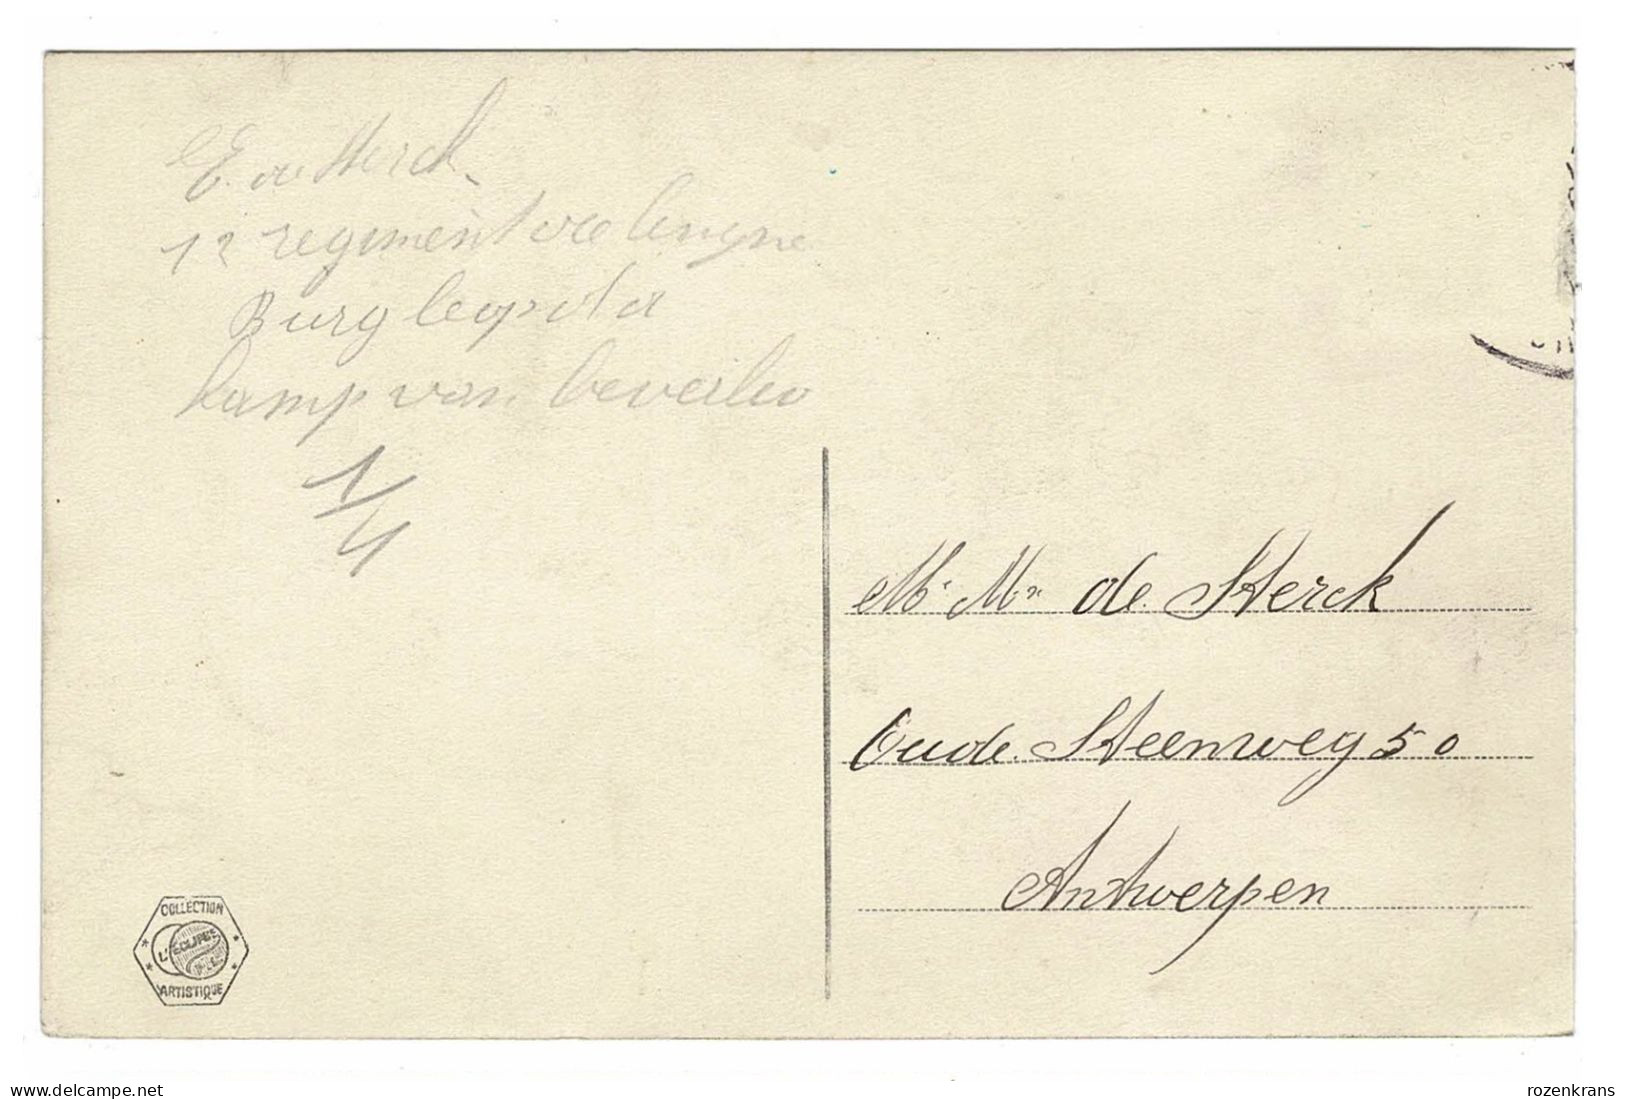 E. de Sterck
12 regiment de lingne
Burg leopold
Kamp van beverloo
1/4
Mr Mn de Sterck
Oude Steenweg 50
Antwerpen
COLLECTION
L'ECLIPSE
ARTISTIQUE
www.delcampe.net
rozenkrans